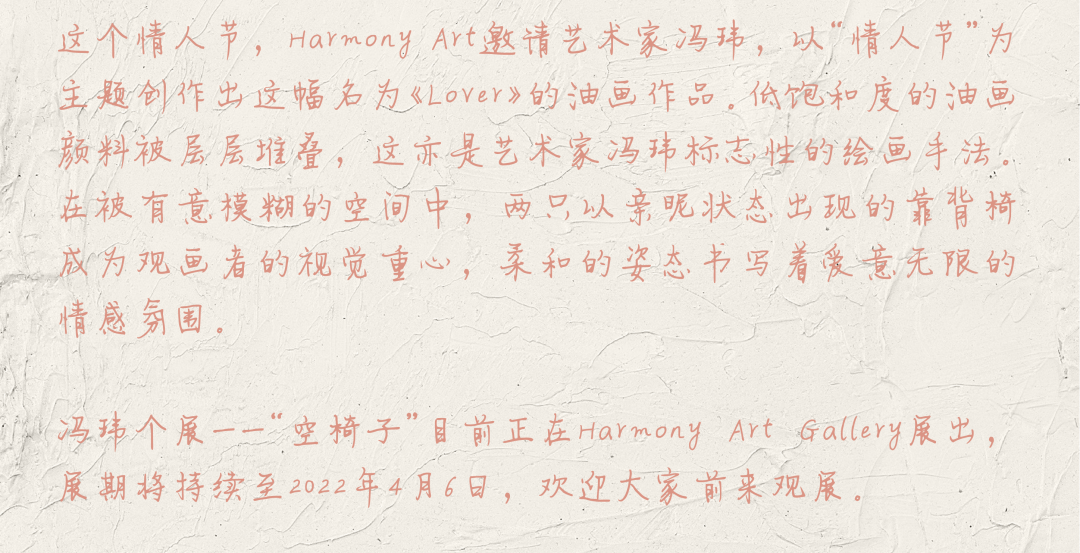 这个情人节，Harmony Art邀请艺术家冯玮，以“情人节”为
主题创作出这幅名为《Lover》的油画作品。低饱和度的油画
颜料被层层堆叠，这亦是艺术家冯玮标志性的绘画手法。
在被有意模糊的空间中，两只以亲昵状态出现的靠背椅
成为观画者的视觉重心，柔和的姿态书写着爱意无限的
情感氛围。
冯玮个展——“空椅子”目前正在Harmony Art Gallery展出，
展期将持续至2022年4月6日，欢迎大家前来观展。